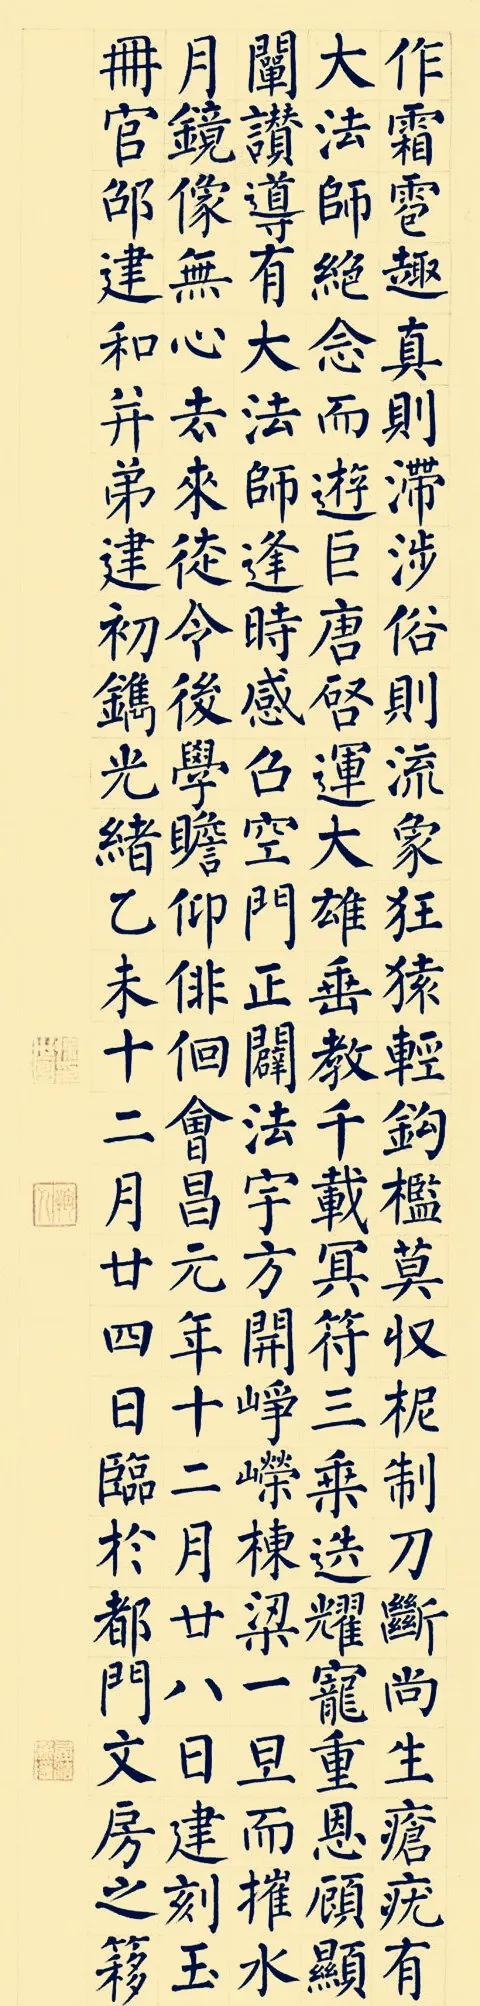 作霜雹趣真則滯涉俗則流象狂猿輕鈎檻莫収柅制刀斷尚生瘡疣有
大法師絕念而遊巨唐啓運大雄垂教千載冥符三乘迭耀寵重恩顧顯
闡讃導有大法師逢時感召空門正闢法宇方開崢嶸棟梁一旦而摧水
月鏡像無心去來徒令後學瞻仰俳佪會昌元年十二月廿八日建刻玉
冊官邵建和并弟建初鐫光緒乙未十二月廿四日臨於都門文房之簃